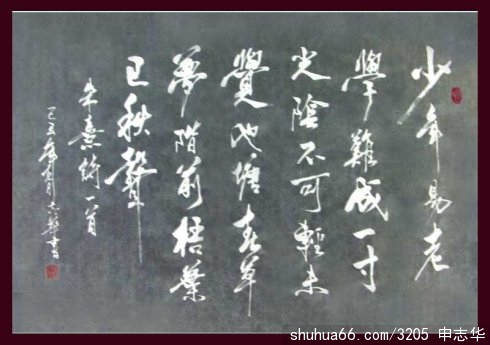 少年易老
學難成一寸
光陰不可輕未
覺池塘春草
夢階前梧葉
已秋聲
朱熹詩一首
己丑年月志華書
shuhua66.com/3205 申志华